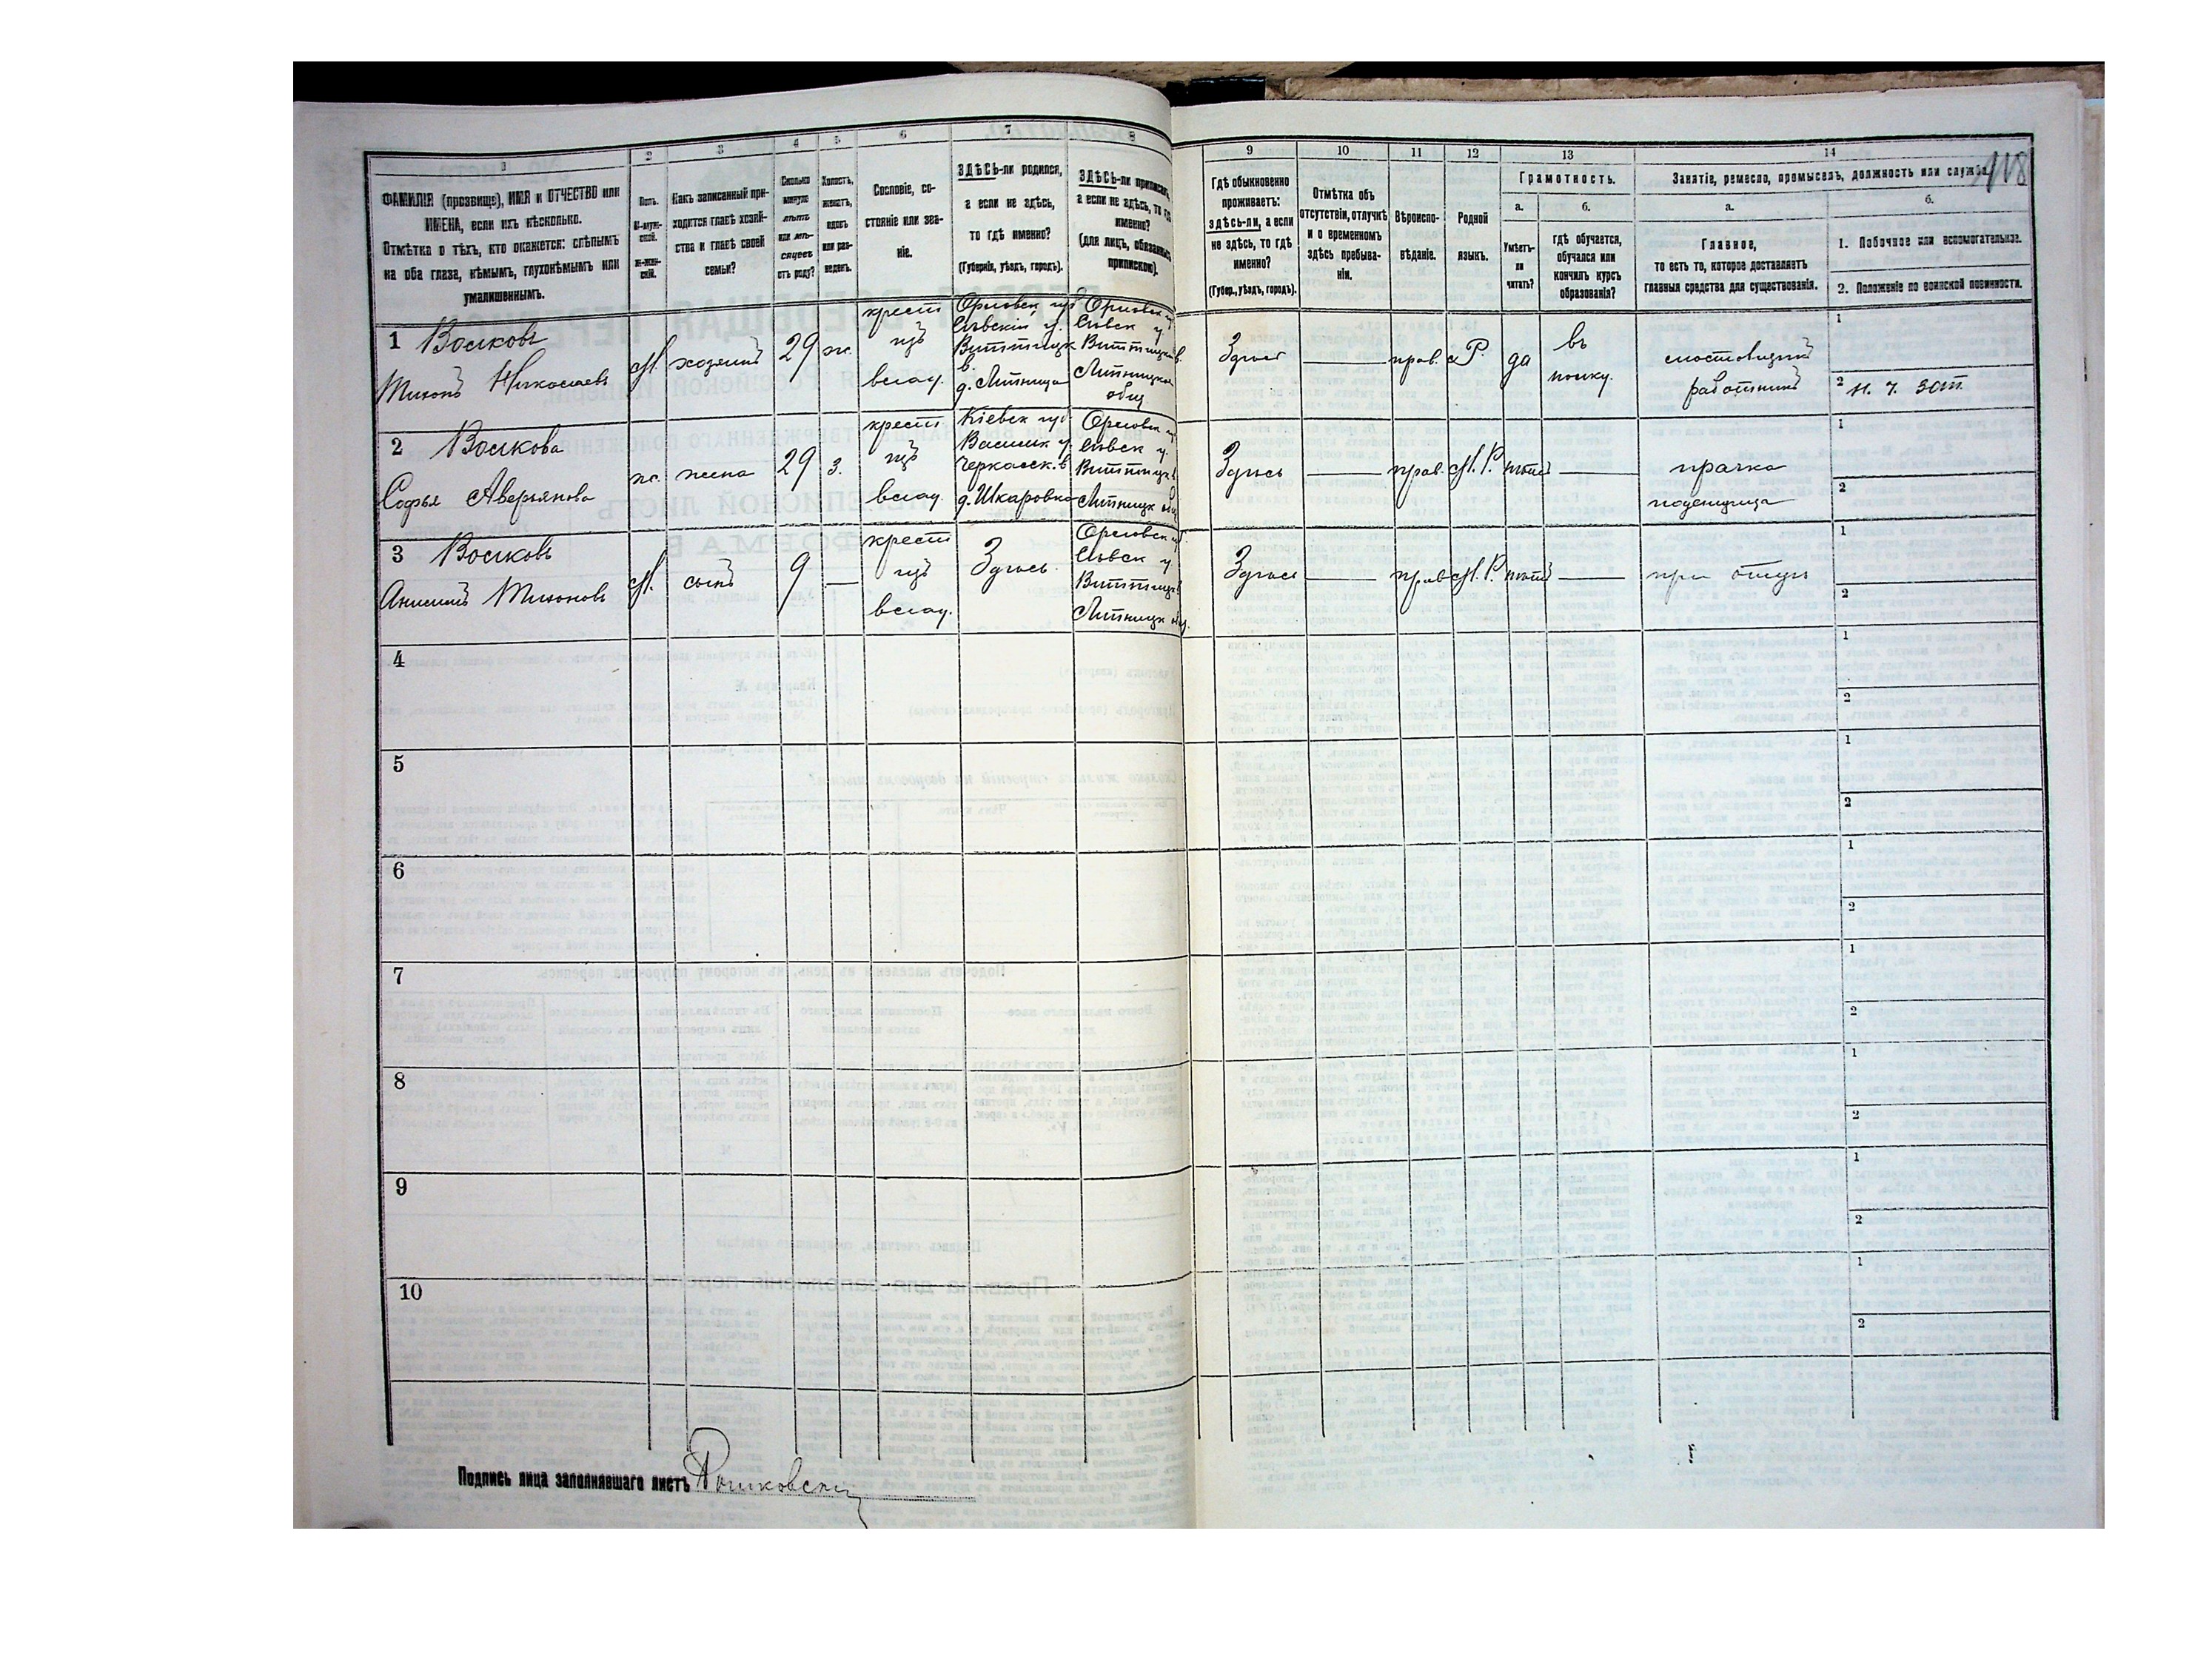 1 2 3 4 5 6 7 8 9 10 11 12 13 14
118
ФАМИЛІЯ (прозвище), ИМЯ и ОТЧЕСТВО или
ИМЕНА, если ихъ нѣсколько.
Отмѣтка о тѣхъ, кто окажется: слѣпымъ
на оба глаза, нѣмымъ, глухонѣмымъ или
умалишеннымъ.
Полъ.
М-муж-
ской.
Ж-жен-
скій.
Какъ записанный при-
ходится главѣ хозяй-
ства и главѣ своей
семьи?
Сколько
минуло
лѣтъ
или мѣ-
сяцевъ
отъ роду?
Холостъ,
женатъ,
вдовъ
или раз-
веденъ.
Сословіе, со-
стояніе или зва-
ніе.
ЗДѢСЬ-ли родился,
а если не здѣсь,
то гдѣ именно?
(Губернія, уѣздъ, городъ).
ЗДѢСЬ-ли приписанъ,
а если не здѣсь, то гдѣ
именно?
(для лицъ, обязанныхъ
припискою).
Гдѣ обыкновенно
проживаетъ:
здѣсь-ли, а если
не здѣсь, то гдѣ
именно?
(Губер., уѣздъ, городъ).
Отмѣтка объ
отсутствіи, отлучкѣ
и о временномъ
здѣсь пребыва-
ніи.
Вѣроиспо-
вѣданіе.
Родной
языкъ.
Грамотность.
а.
Умѣетъ-
ли
читать?
б.
гдѣ обучается,
обучался или
кончилъ курсъ
образованія?
Занятіе, ремесло, промыселъ, должность или служба.
а.
Главное,
то есть то, которое доставляетъ
главныя средства для существованія.
б.
1. Побочное или вспомогательное.
2. Положеніе по воинской повинности.
1 Волковъ
Тихонъ Николаевъ
М.
хозяинъ
29
ж.
крест
изъ
влад.
Орловск губ
Сѣвскій у.
в.
д. Лѣтница
Орловск г
Сѣвск у
Лѣтницкое
общ
Здѣсь
—
прав.
Р.
да
въ
полку.
мостовщикъ
работникъ
1
2
2 Волкова
Софья Аверьянова
ж.
жена
29
з.
крест
изъ
влад.
Кіевск губ
Васильк у.
Черкасск. в
д. Шкаровка
Орловск г
Сѣвск у.
Лѣтницк общ
Здѣсь
—
прав.
М. Р.
нѣтъ
—
прачка
поденщица
1
2
3 Волковъ
Анисимъ Тихоновъ
М.
сынъ
9
—
крест
изъ
влад.
Здѣсь.
Орловск г.
Сѣвск у
Лѣтницк общ.
Здѣсь
—
прав
М. Р.
нѣтъ
—
при отцѣ
1
2
4
1
2
5
1
2
6
1
2
7
1
2
8
1
2
9
1
2
10
1
2
Подпись лица заполнявшаго листъ